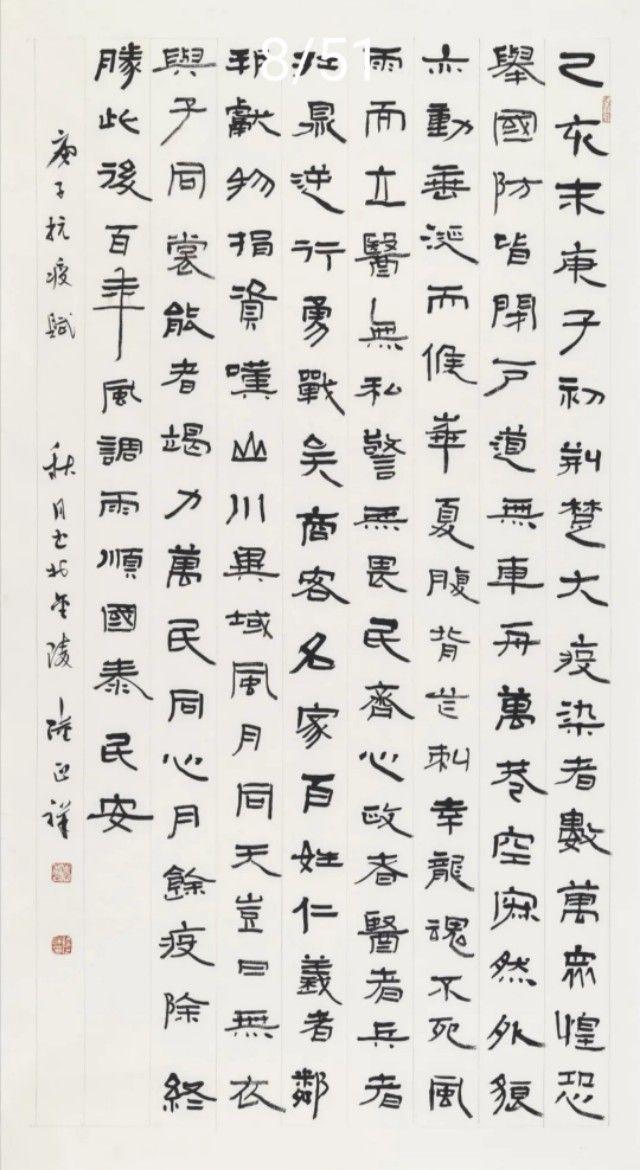 8/51
己亥末庚子初荆楚大疫染者數萬眾惶恐
舉國防皆閉戶道無車舟萬巷空寂然外狼
亦動垂涎而候華夏腹背芒刺幸龍魂不死風
雨而立醫無私警無畏民齊心政者醫者兵者
扛鼎逆行勇戰矣商客名家百姓仁義者鄰
邦獻物捐資嘆山川異域風月同天豈曰無衣
與子同裳能者竭力萬民同心月餘疫除終
勝此後百年風調雨順國泰民安
庚子抗疫賦 秋月書於金陵 正祥